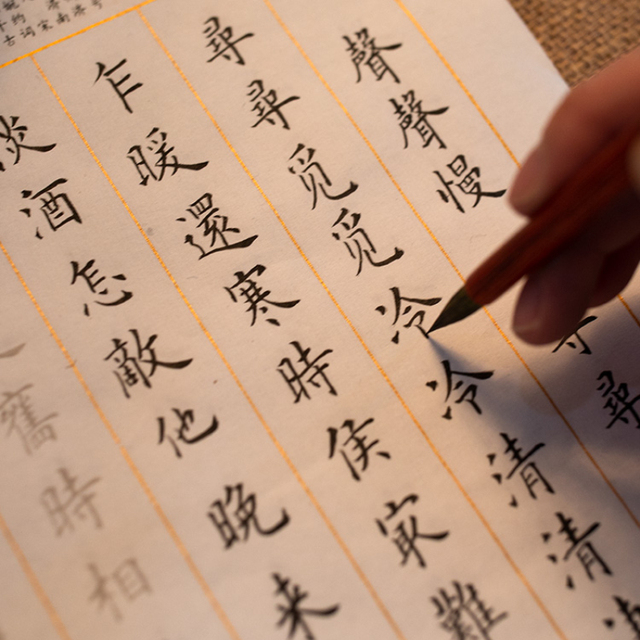 聲聲慢 尋
尋尋觅觅冷冷清清
乍暖還寒時候最難
淡酒怎敵他晚来
舊時相